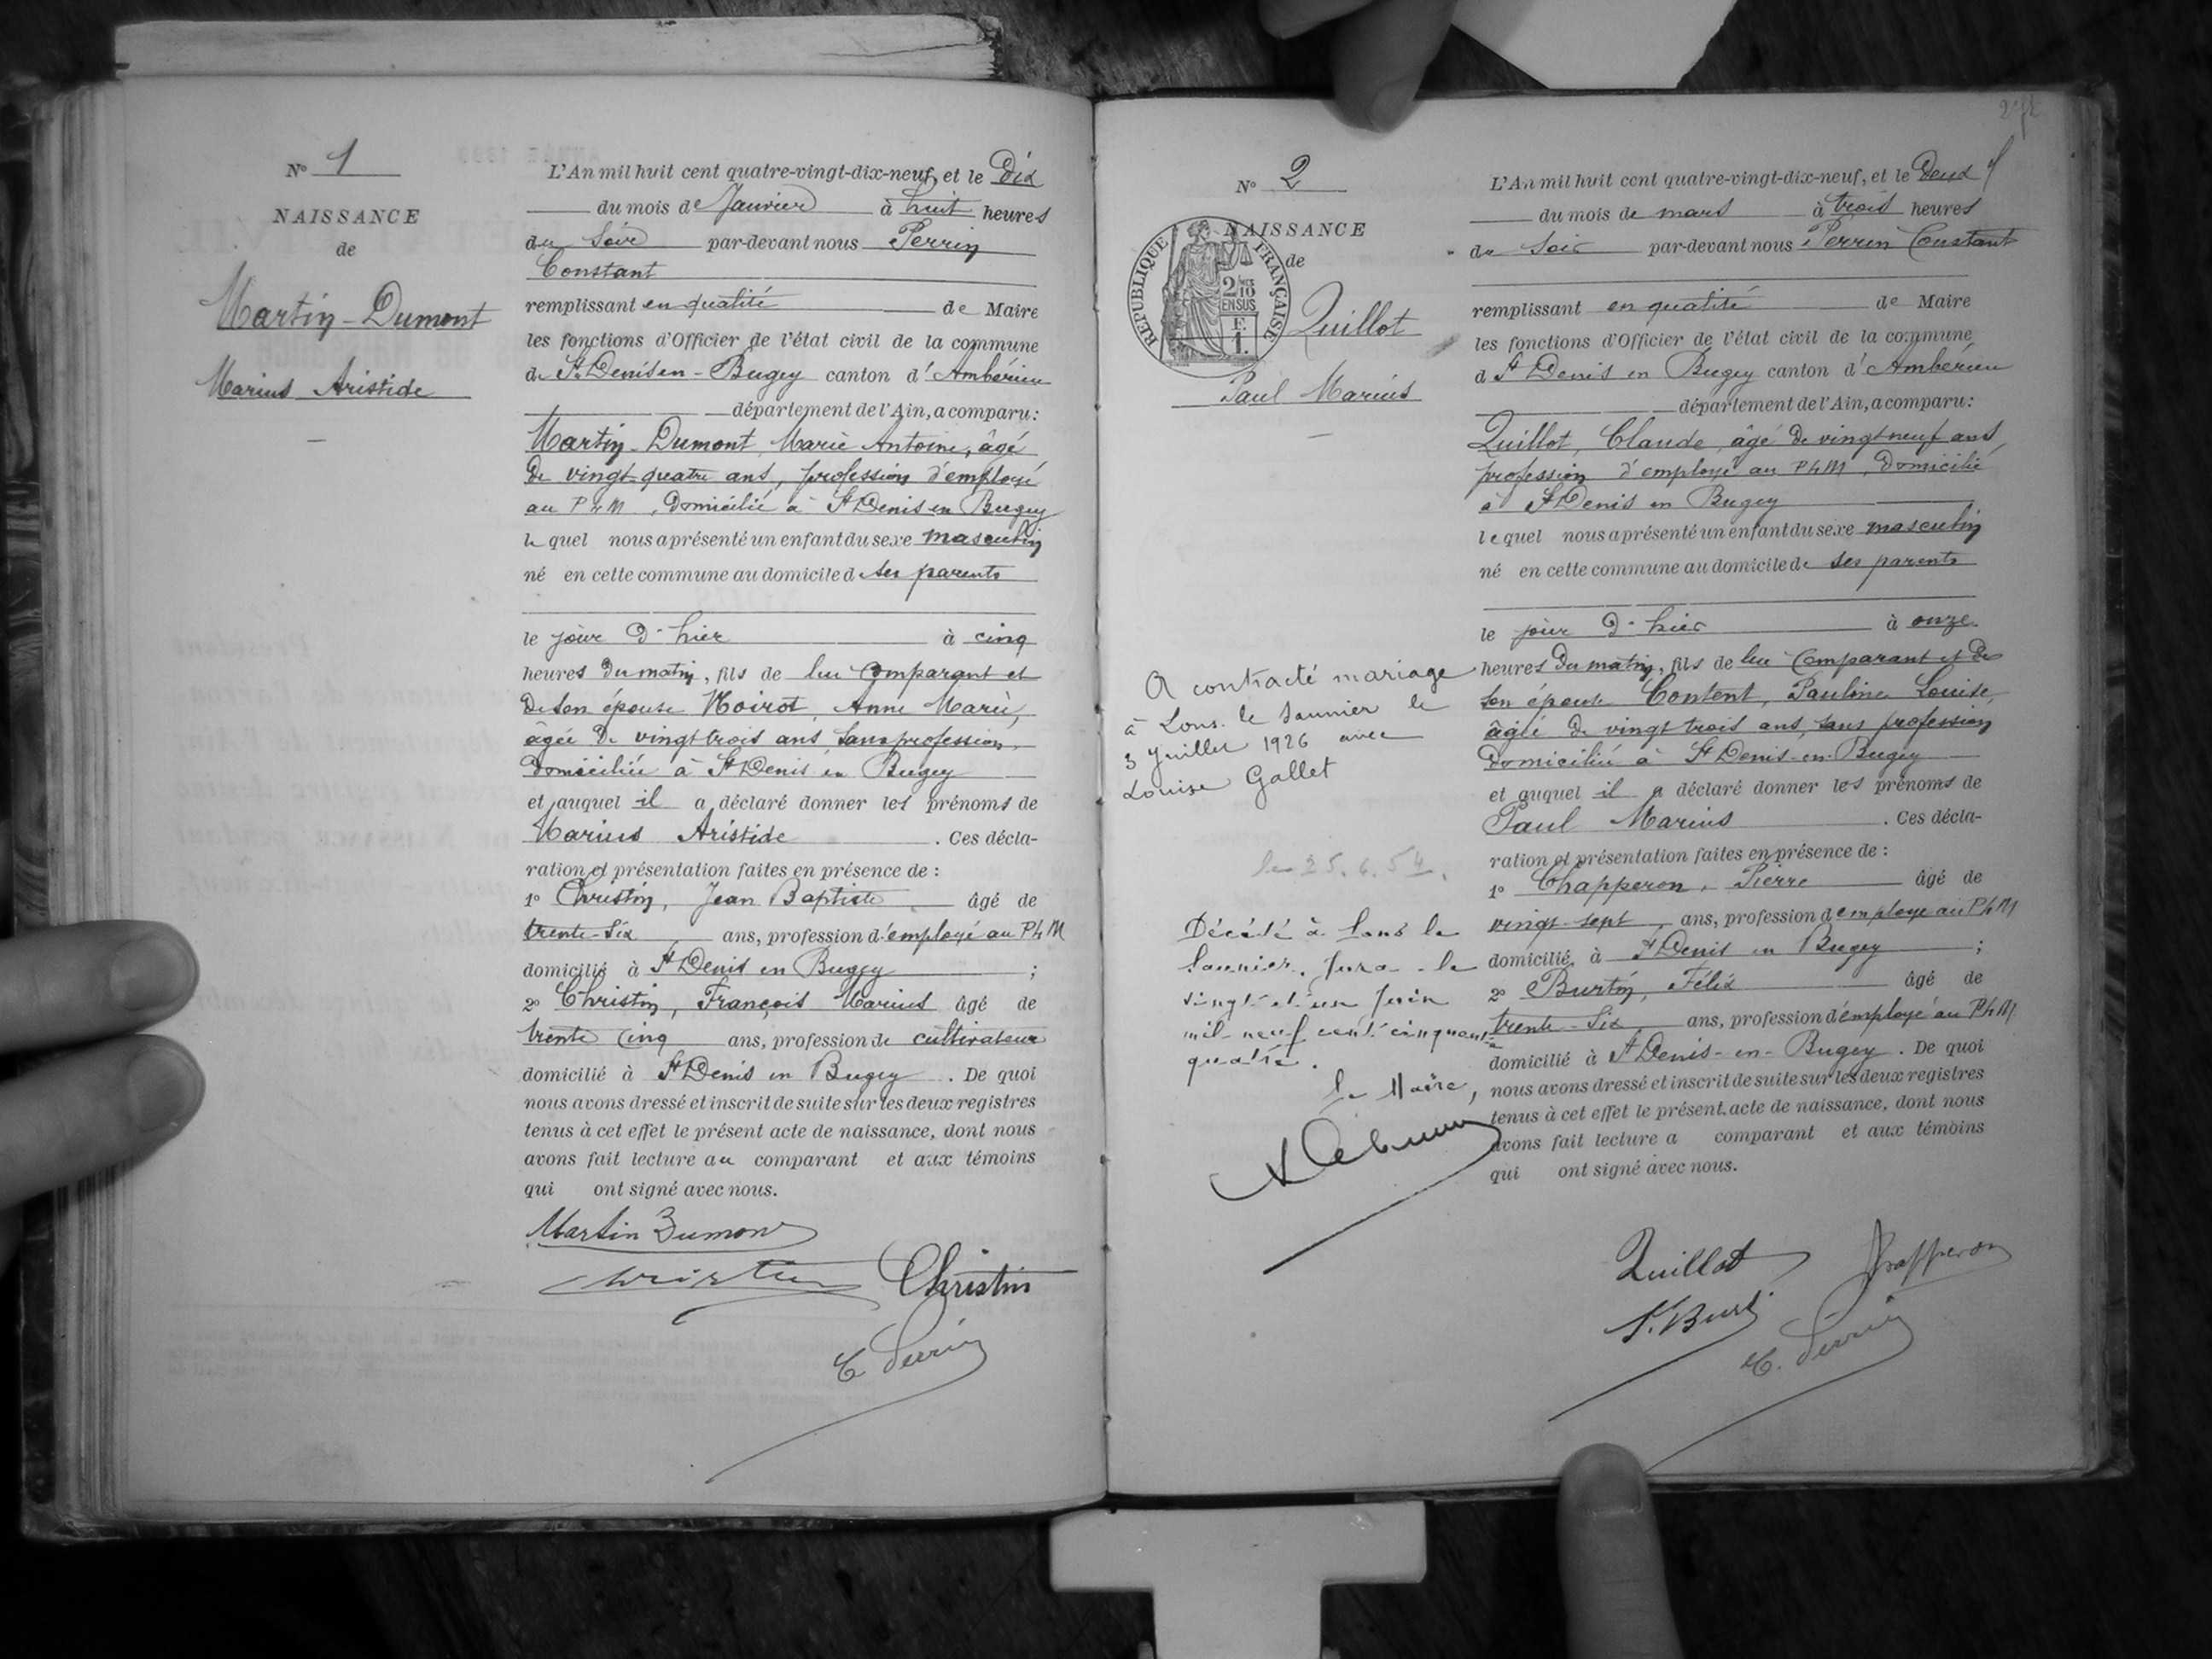 N° 1
NAISSANCE
de
Martin-Dumont
Marius Aristide
L'An mil huit cent quatre-vingt-dix-neuf, et le Dix
du mois de Janvier à huit heures
du Soir par-devant nous Perrin
Constant
remplissant en qualité de Maire
les fonctions d'Officier de l'état civil de la commune
de St Denis en-Bugey canton d'Ambérieu
département de l'Ain, a comparu:
Martin-Dumont, Marie Antoine, âgé
de vingt-quatre ans, profession d'employé
au PLM, domicilié à St Denis en Bugey
lequel nous a présenté un enfant du sexe masculin
né en cette commune au domicile de ses parents
le jour d'hier à cinq
heures du matin, fils de lui comparant et
de son épouse Noirot, Anne Marie,
âgée de vingt trois ans, sans profession,
domiciliée à St Denis en Bugey
et auquel il a déclaré donner les prénoms de
Marius Aristide. Ces décla-
ration et présentation faites en présence de :
1° Christin, Jean Baptiste âgé de
trente-six ans, profession d'employé au PLM
domicilié à St Denis en Bugey ;
2° Christin, François Marius âgé de
trente cinq ans, profession de cultivateur
domicilié à St Denis en Bugey. De quoi
nous avons dressé et inscrit de suite sur les deux registres
tenus à cet effet le présent acte de naissance, dont nous
avons fait lecture au comparant et aux témoins
qui ont signé avec nous.
Martin Dumont
Christin Christin
C Perrin
N° 2
NAISSANCE
de
REPUBLIQUE FRANÇAISE
2/10
EN SUS
Quillot
Paul Marius
A contracté mariage
à Lons. le Saunier le
3 Juillet 1926 avec
Louise Gallet
le 25.6.54.
Décédé à Lons le
Saunier. Jura - le
vingt et un Juin
mil-neuf cent cinquante
quatre.
Le Maire,
L'An mil huit cent quatre-vingt-dix-neuf, et le Deux
du mois de mars à trois heures
du Soir par-devant nous Perrin Constant
remplissant en qualité de Maire
les fonctions d'Officier de l'état civil de la commune
d St Denis en Bugey canton d'Ambérieu
département de l'Ain, a comparu:
Quillot, Claude, âgé de vingt neuf ans,
profession d'employé au PLM, domicilié
à St Denis en Bugey
lequel nous a présenté un enfant du sexe masculin
né en cette commune au domicile de ses parents
le jour d'hier à onze
heures du matin, fils de lui comparant et de
son épouse Content, Pauline Louise,
âgée de vingt trois ans, sans profession
domiciliée à St Denis-en-Bugey
et auquel il a déclaré donner les prénoms de
Paul Marius. Ces décla-
ration et présentation faites en présence de :
1° Chapperon, Pierre âgé de
vingt-sept ans, profession d'employé au PLM
domicilié à St Denis en Bugey ;
2° Burtin, Félix âgé de
trente-six ans, profession d'employé au PLM
domicilié à St Denis-en-Bugey. De quoi
nous avons dressé et inscrit de suite sur les deux registres
tenus à cet effet le présent acte de naissance, dont nous
avons fait lecture a comparant et aux témoins
qui ont signé avec nous.
Quillot Chapperon
C. Perrin